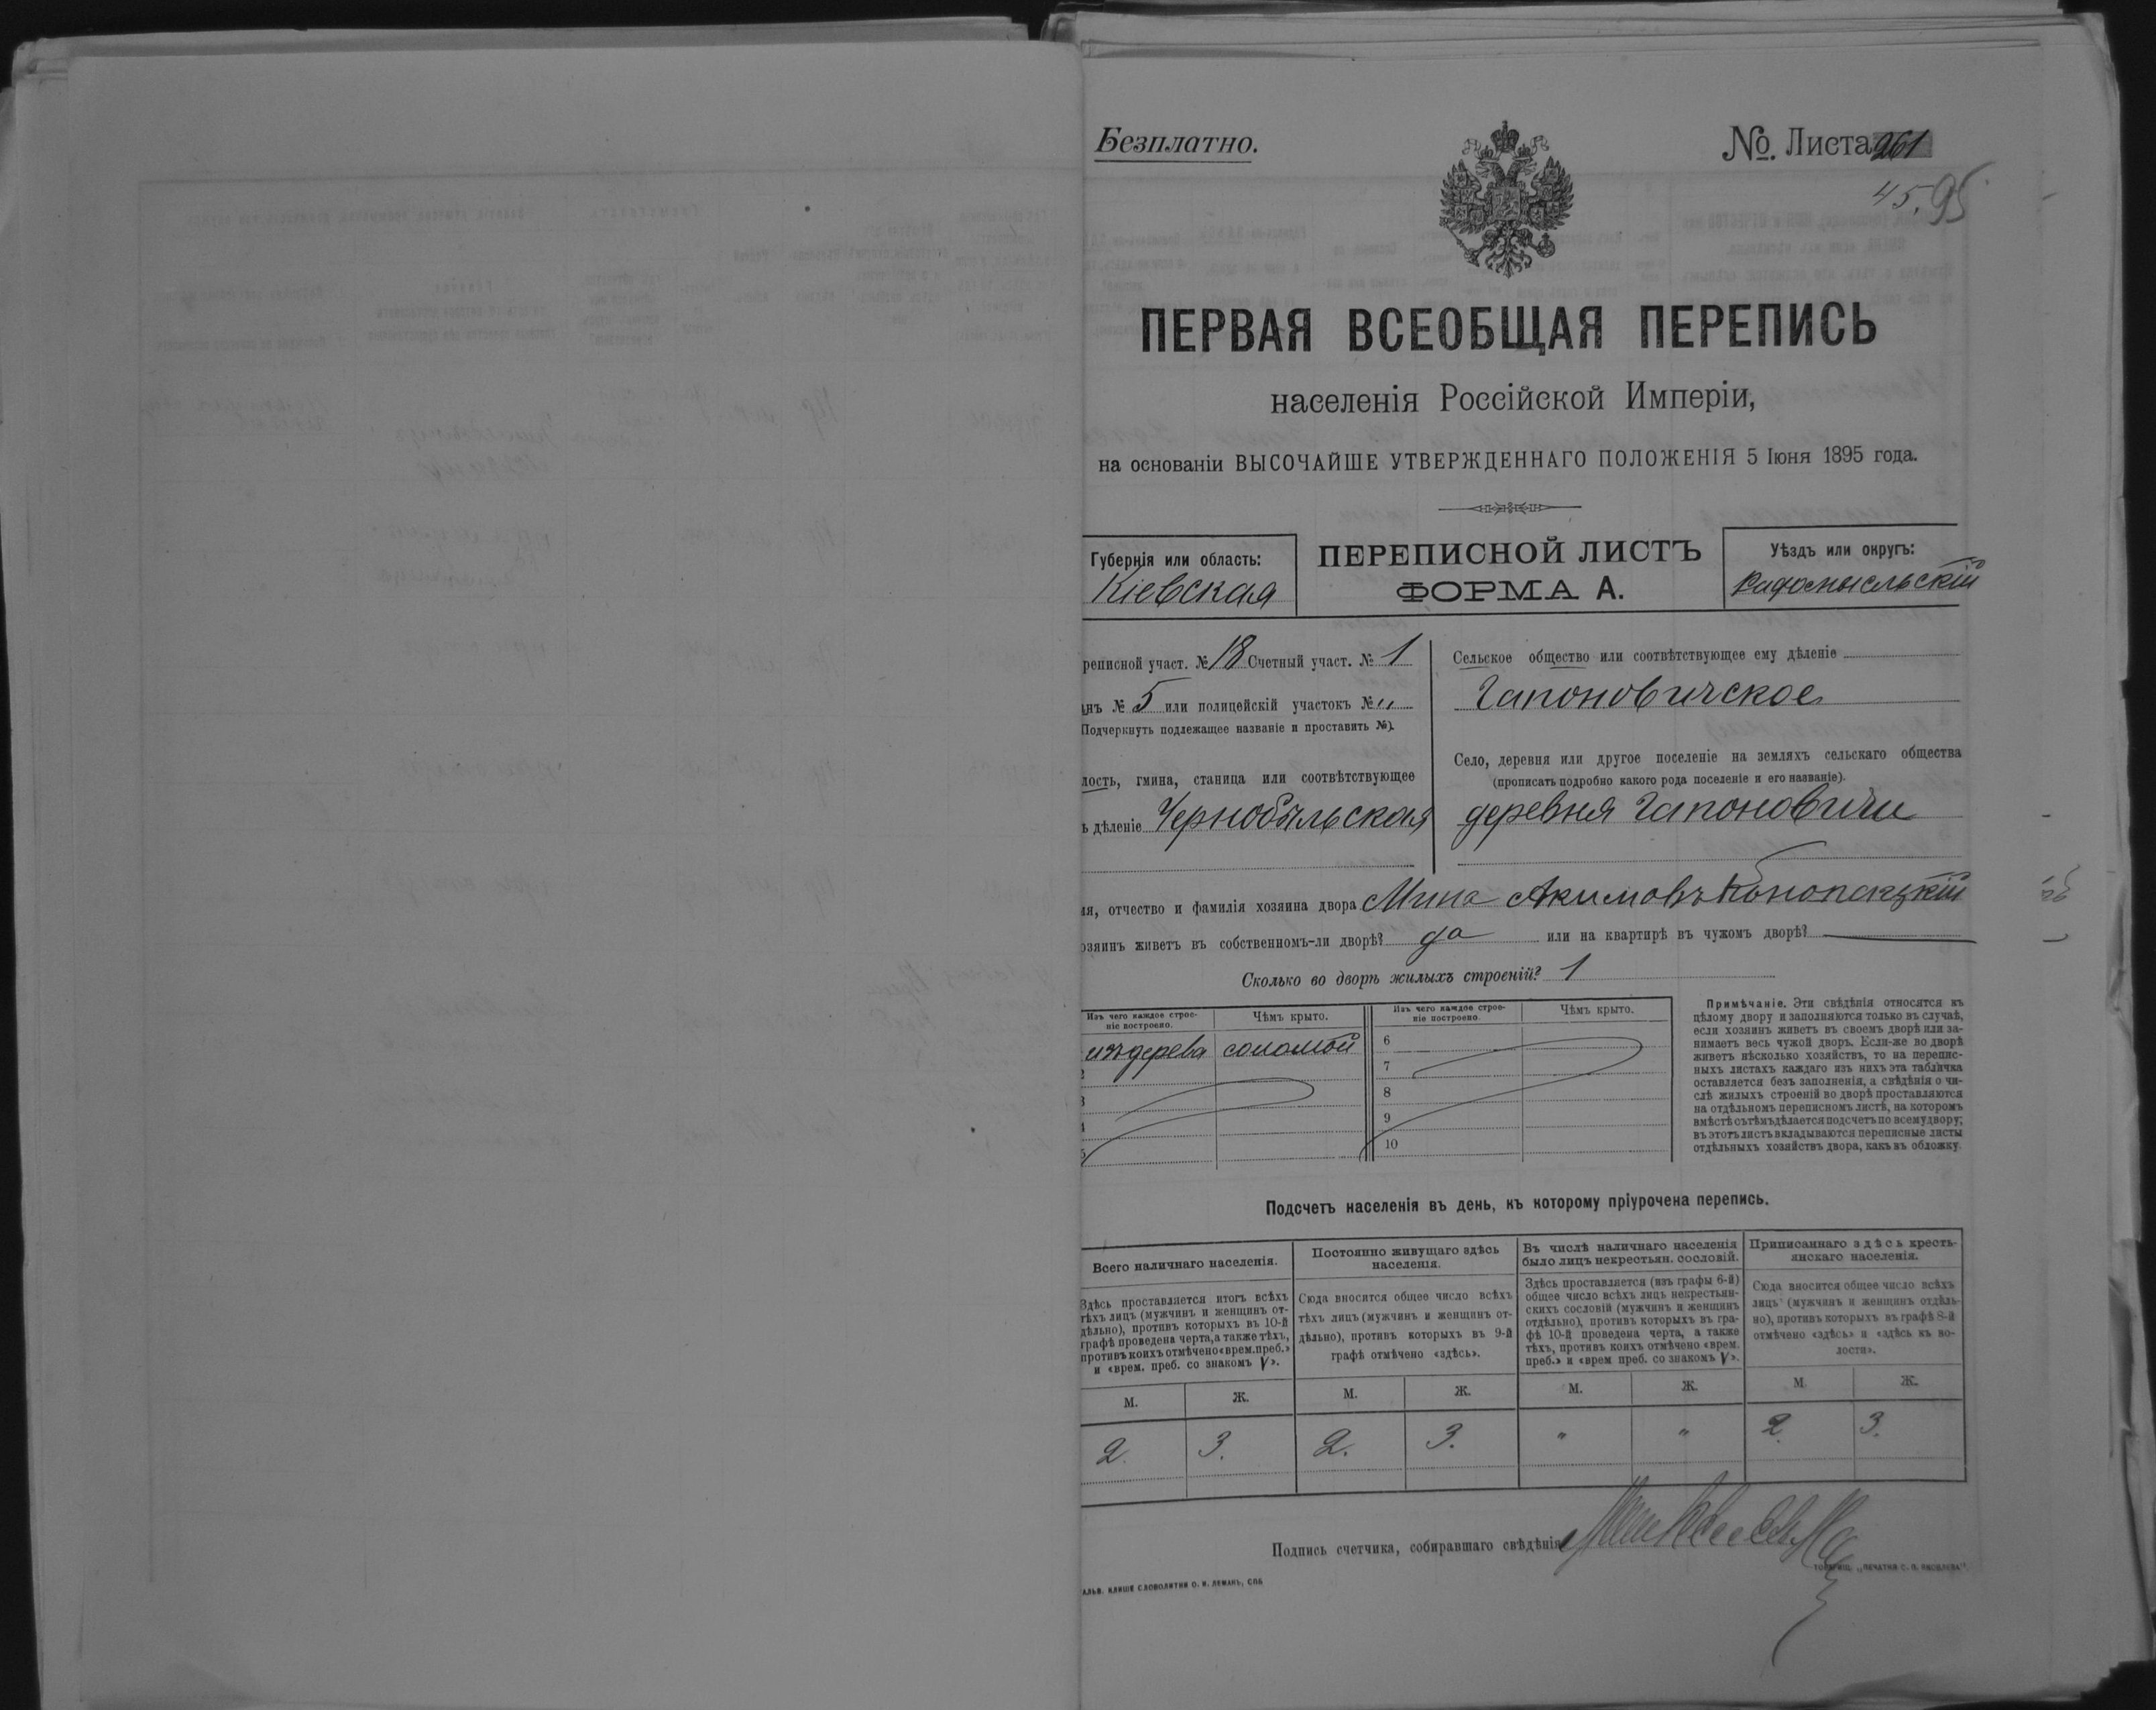 Безплатно.
№. Листа 261
45. 95
ПЕРВАЯ ВСЕОБЩАЯ ПЕРЕПИСЬ
населенія Россійской Имперіи,
на основаніи ВЫСОЧАЙШЕ УТВЕРЖДЕННАГО ПОЛОЖЕНІЯ 5 Іюня 1895 года.
Губернія или область:
Кіевская
ПЕРЕПИСНОЙ ЛИСТЪ
ФОРМА А.
Уѣздъ или округъ:
Радомысльскій
реписной участ. № 18 Счетный участ. № 1
нъ № 5 или полицейскій участокъ № "
Подчеркнуть подлежащее названіе и проставить №).
лость, гмина, станица или соотвѣтствующее
ъ дѣленіе Чернобыльская
Сельское общество или соотвѣтствующее ему дѣленіе
Гапоновичское
Село, деревня или другое поселеніе на земляхъ сельскаго общества
(прописать подробно какого рода поселеніе и его названіе).
деревня Гапоновичи
ія, отчество и фамилія хозяина двора Мина Акимовъ Конопацкій
озяинъ живетъ въ собственномъ-ли дворѣ? да или на квартирѣ въ чужомъ дворѣ?
Сколько во дворѣ жилыхъ строеній? 1
Изъ чего каждое строе-
ніе построено.
Чѣмъ крыто.
Изъ чего каждое строе-
ніе построено.
Чѣмъ крыто.
изъ дерева соломой
2
3
4
5
6
7
8
9
10
Примѣчаніе. Эти свѣдѣнія относятся къ
цѣлому двору и заполняются только въ случаѣ,
если хозяинъ живетъ въ своемъ дворѣ или за-
нимаетъ весь чужой дворъ. Если-же во дворѣ
живетъ нѣсколько хозяйствъ, то на перепис-
ныхъ листахъ каждаго изъ нихъ эта табличка
оставляется безъ заполненія, а свѣдѣнія о чи-
слѣ жилыхъ строеній во дворѣ проставляются
на отдѣльномъ переписномъ листѣ, на которомъ
вмѣстѣ съ тѣмъ дѣлается подсчетъ по всему двору;
въ этотъ листъ вкладываются переписные листы
отдѣльныхъ хозяйствъ двора, какъ въ обложку.
Подсчетъ населенія въ день, къ которому пріурочена перепись.
Всего наличнаго населенія.
Здѣсь проставляется итогъ всѣхъ
тѣхъ лицъ (мужчинъ и женщинъ от-
дѣльно), противъ которыхъ въ 10-й
графѣ проведена черта, а также тѣхъ,
противъ коихъ отмѣчено «врем. преб.»
и «врем. преб. со знакомъ V».
Постоянно живущаго здѣсь
населенія.
Сюда вносится общее число всѣхъ
тѣхъ лицъ (мужчинъ и женщинъ от-
дѣльно), противъ которыхъ въ 9-й
графѣ отмѣчено «здѣсь».
Въ числѣ наличнаго населенія
было лицъ некрестьян. сословій.
Здѣсь проставляется (изъ графы 6-й)
общее число всѣхъ лицъ некрестьян-
скихъ сословій (мужчинъ и женщинъ
отдѣльно), противъ которыхъ въ гра-
фѣ 10-й проведена черта, а также
тѣхъ, противъ коихъ отмѣчено «врем.
преб.» и «врем преб. со знакомъ V».
Приписаннаго здѣсь кресть-
янскаго населенія.
Сюда вносится общее число всѣхъ
лицъ (мужчинъ и женщинъ отдѣль-
но), противъ которыхъ въ графѣ 8-й
отмѣчено «здѣсь» и «здѣсь въ во-
лости».
М. Ж. М. Ж. М. Ж. М. Ж.
2. 3. 2. 3. " " 2. 3.
Подпись счетчика, собиравшаго свѣдѣнія
ТОВАРИЩ. „ПЕЧАТНЯ С. П. ЯКОВЛЕВА"
АЛЬВ. КЛИШЕ СЛОВОЛИТНИ О. И. ЛЕМАНЪ, СПБ